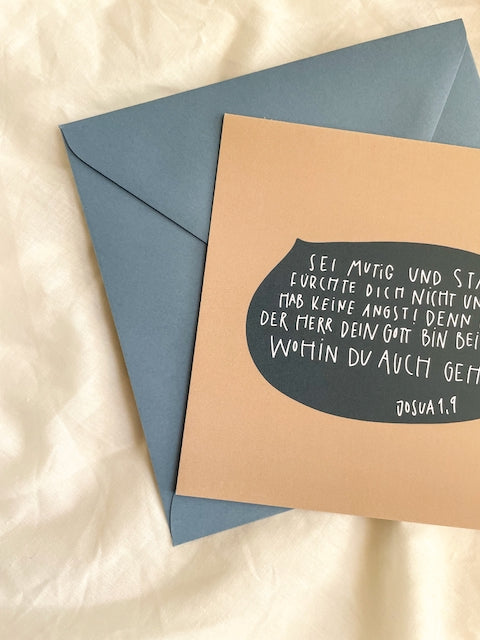 SEI MUTIG UND STA
FÜRCHTE DICH NICHT UN
HAB KEINE ANGST! DENN
DER HERR DEIN GOTT BIN BEI
WOHIN DU AUCH GEH
JOSUA 1,9